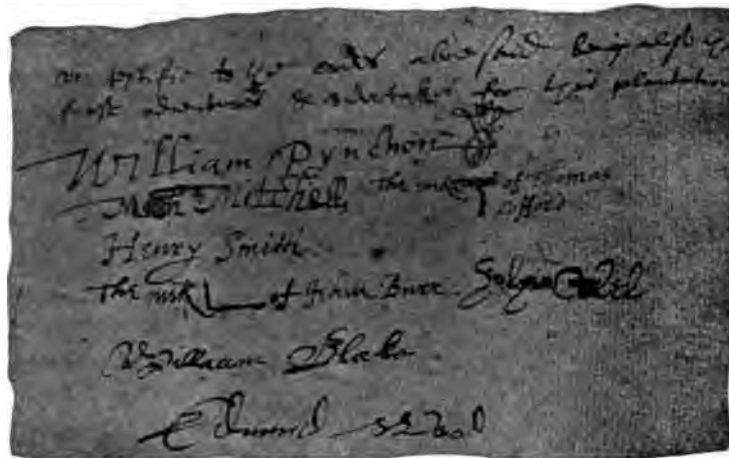 we testifie to the order abovesaid being all of
first adventurers & undertakers for the said plantation
William Pynchon
Mitchell the mark T of Thomas Ufford
Henry Smith
The mark of Burr
William Blake
Edmund Wood